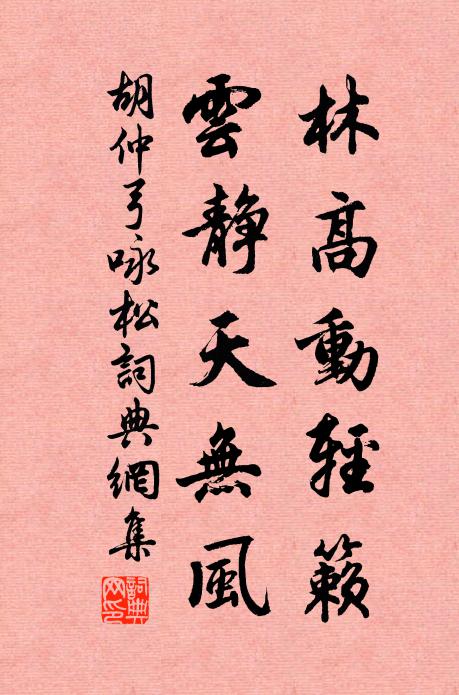 林高動輕籟
雲靜天無風
胡仲弓咏松詞典網集
詞典網印